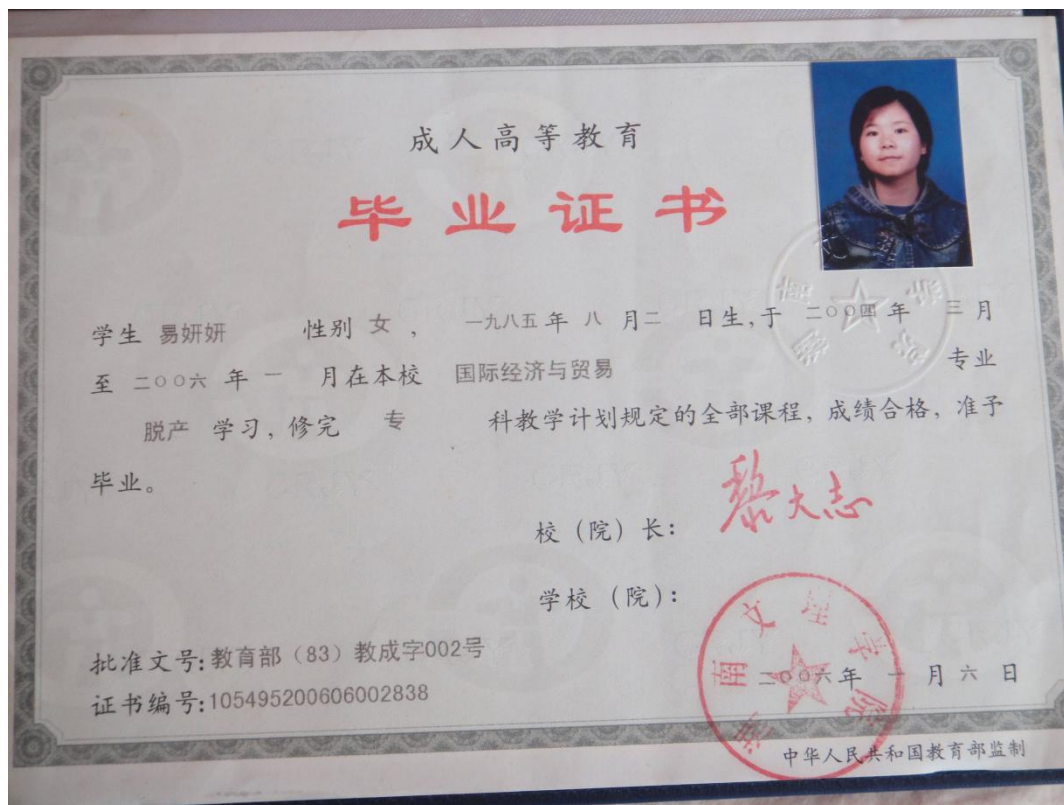 成人高等教育
毕业证书
学生 易妍妍 性别 女 ， 一九八五 年 八 月 二 日生，于 二〇〇四 年 三 月
至 二〇〇六 年 一 月在本校 国际经济与贸易 专业
脱产 学习，修完 专 科教学计划规定的全部课程，成绩合格，准予
毕业。
校（院）长： 黎大志
学校（院）：
湖南文理学院
批准文号:教育部（83）教成字002号
二〇〇六年 一 月 六 日
证书编号:105495200606002838
中华人民共和国教育部监制